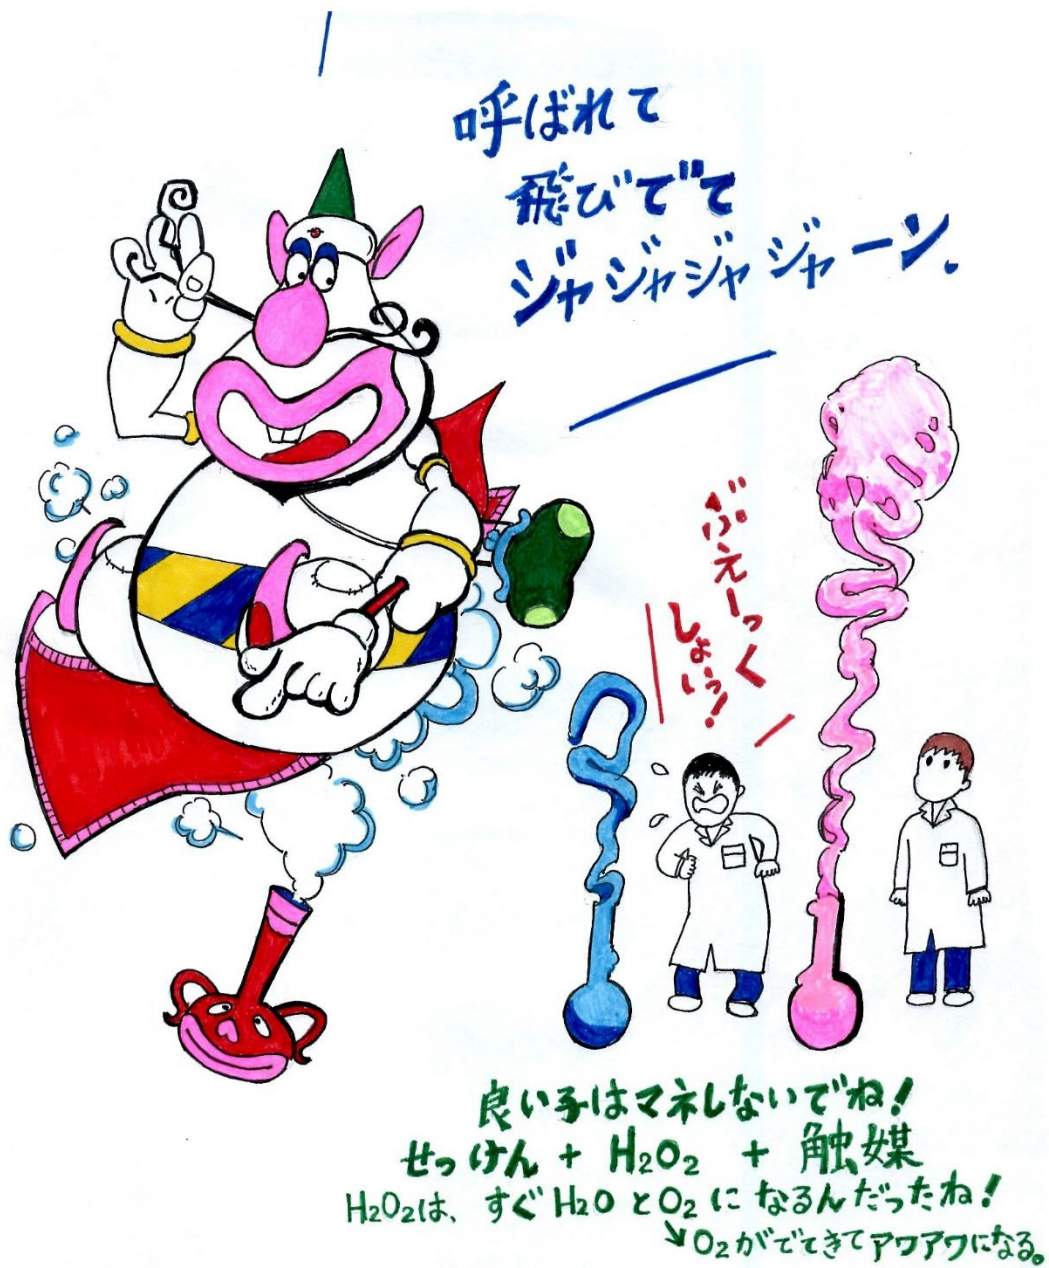 呼ばれて
飛びでて
ジャジャジャジャーン。
ぶえーっく
しょいっ!
良い子はマネしないでね!
せっけん + H₂O₂ + 触媒
H₂O₂は、すぐH₂OとO₂になるんだったね!
↘O₂がでてきてアワアワになる。